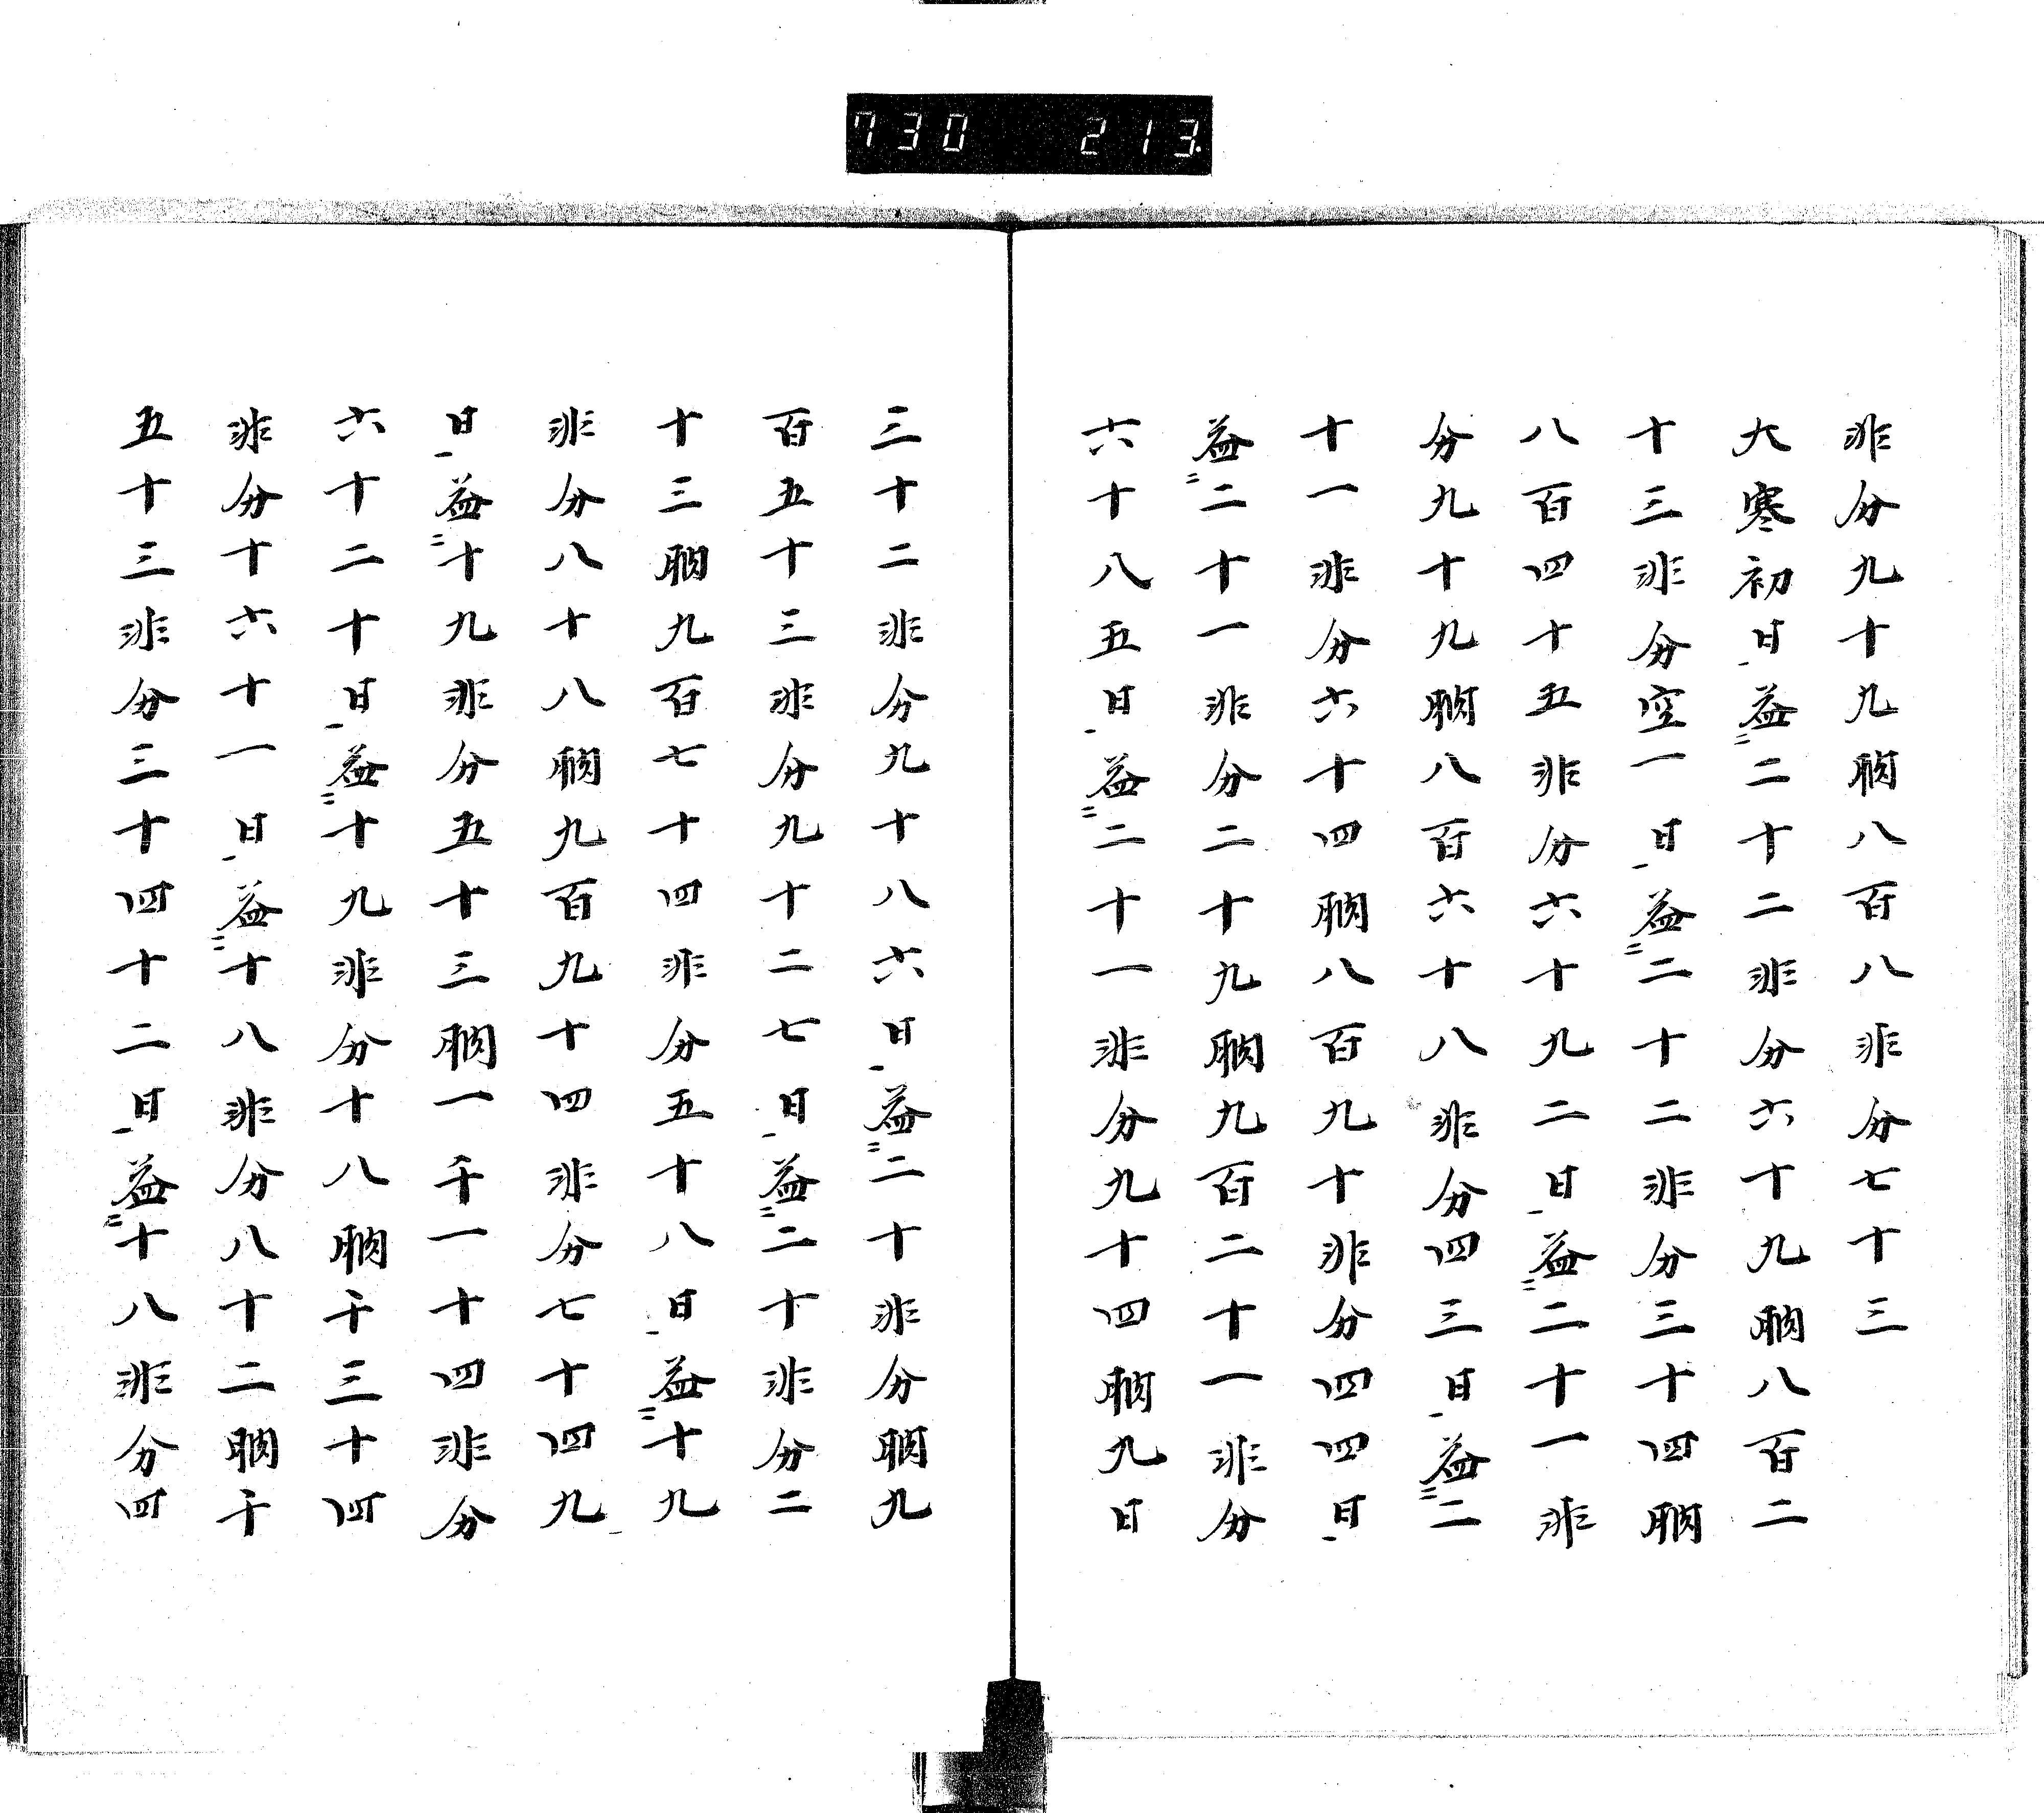 730 213
非分九十九朒八百八非分七十三
大寒初日益二十二非分六十九朒八百二
十三非分空一日益二十二非分三十四朒
八百四十五非分六十九二日益二十一非
分九十九朒八百六十八非分四三日益二
十一非分六十四朒八百九十非分四四日
益二十一非分二十九朒九百二十一非分
六十八五日益二十一非分九十四朒九日
三十二非分九十八六日益二十非分朒九
百五十三非分九十二七日益二十非分二
十三朒九百七十四非分五十八日益十九
非分八十八朒九百九十四非分七十四九
日益十九非分五十三朒一千一十四非分
六十二十日益十九非分十八朒千三十四
非分十六十一日益十八非分八十二朒千
五十三非分三十四十二日益十八非分四